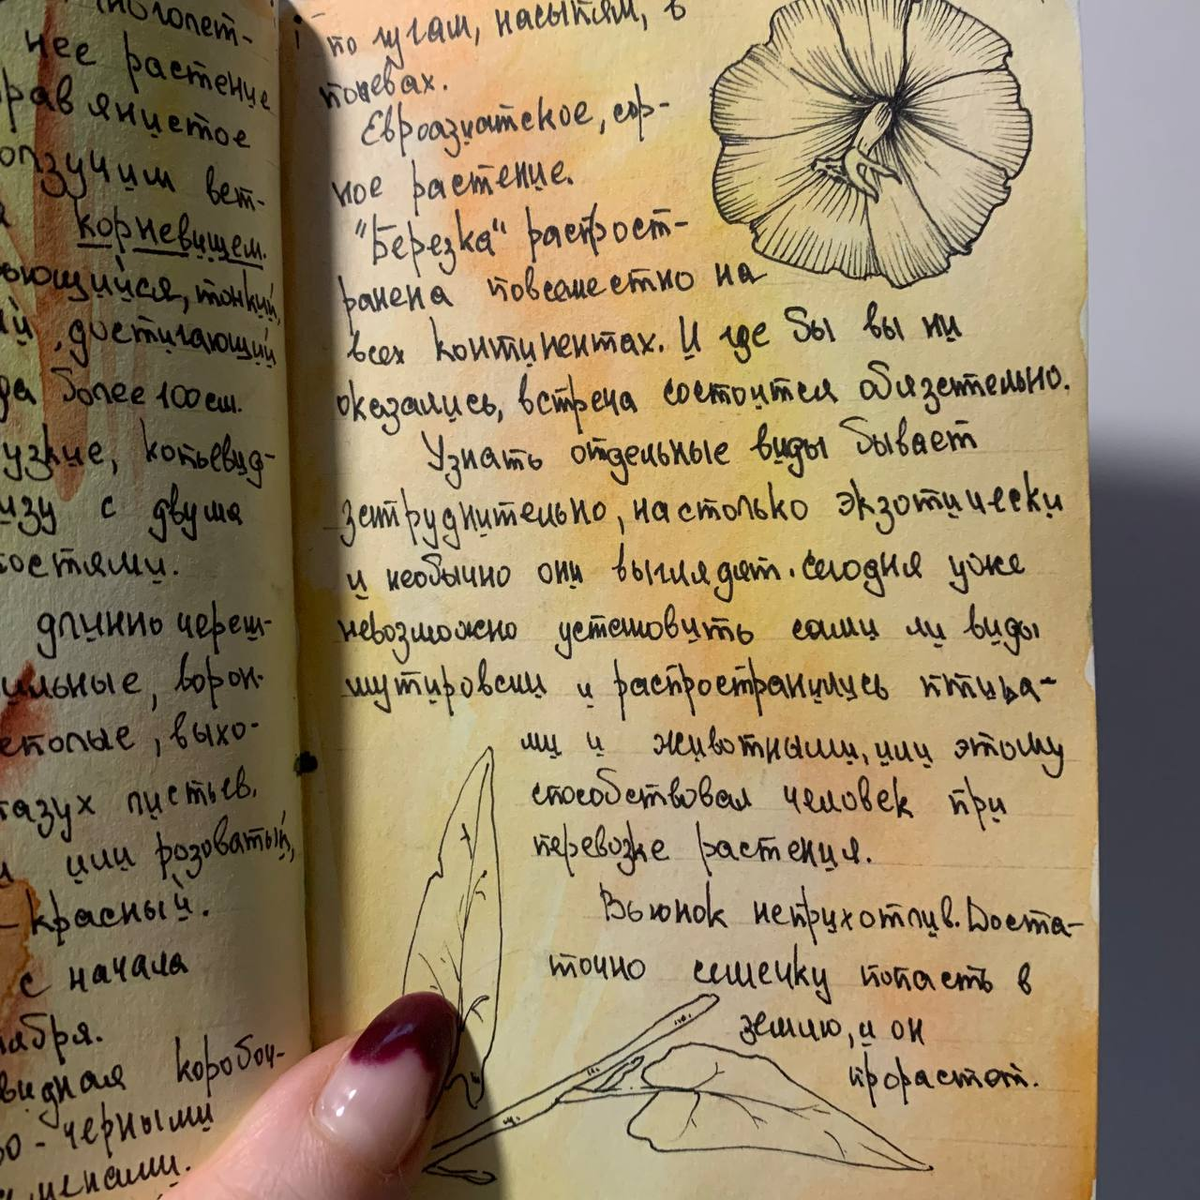 нее растение
травянистое
ползучим вет-
корневищем.
вьющийся, тонкий,
достигающий
более 100 см.
узкие, копьевид-
низу с двумя
костями.
длинно череш-
ильные, ворон-
, выхо-
пазух листьев.
или розоватый,
- красный.
с начала
ября.
видная коробоч-
- черными
менами.
по лугам, насыпям, в
посевах.
Евроазиатское, сор-
ное растение.
"Березка" распрост-
ранена повсеместно на
всех континентах. И где бы вы ни
оказались, встреча состоится обязательно.
Узнать отдельные виды бывает
затруднительно, настолько экзотически
и необычно они выглядят. Сегодня уже
невозможно установить сами ли виды
мутировали и распространились птица-
ми и животными, или этому
способствовал человек при
перевозке растения.
Вьюнок неприхотлив. Доста-
точно семечку попасть в
землю, и он
прорастет.